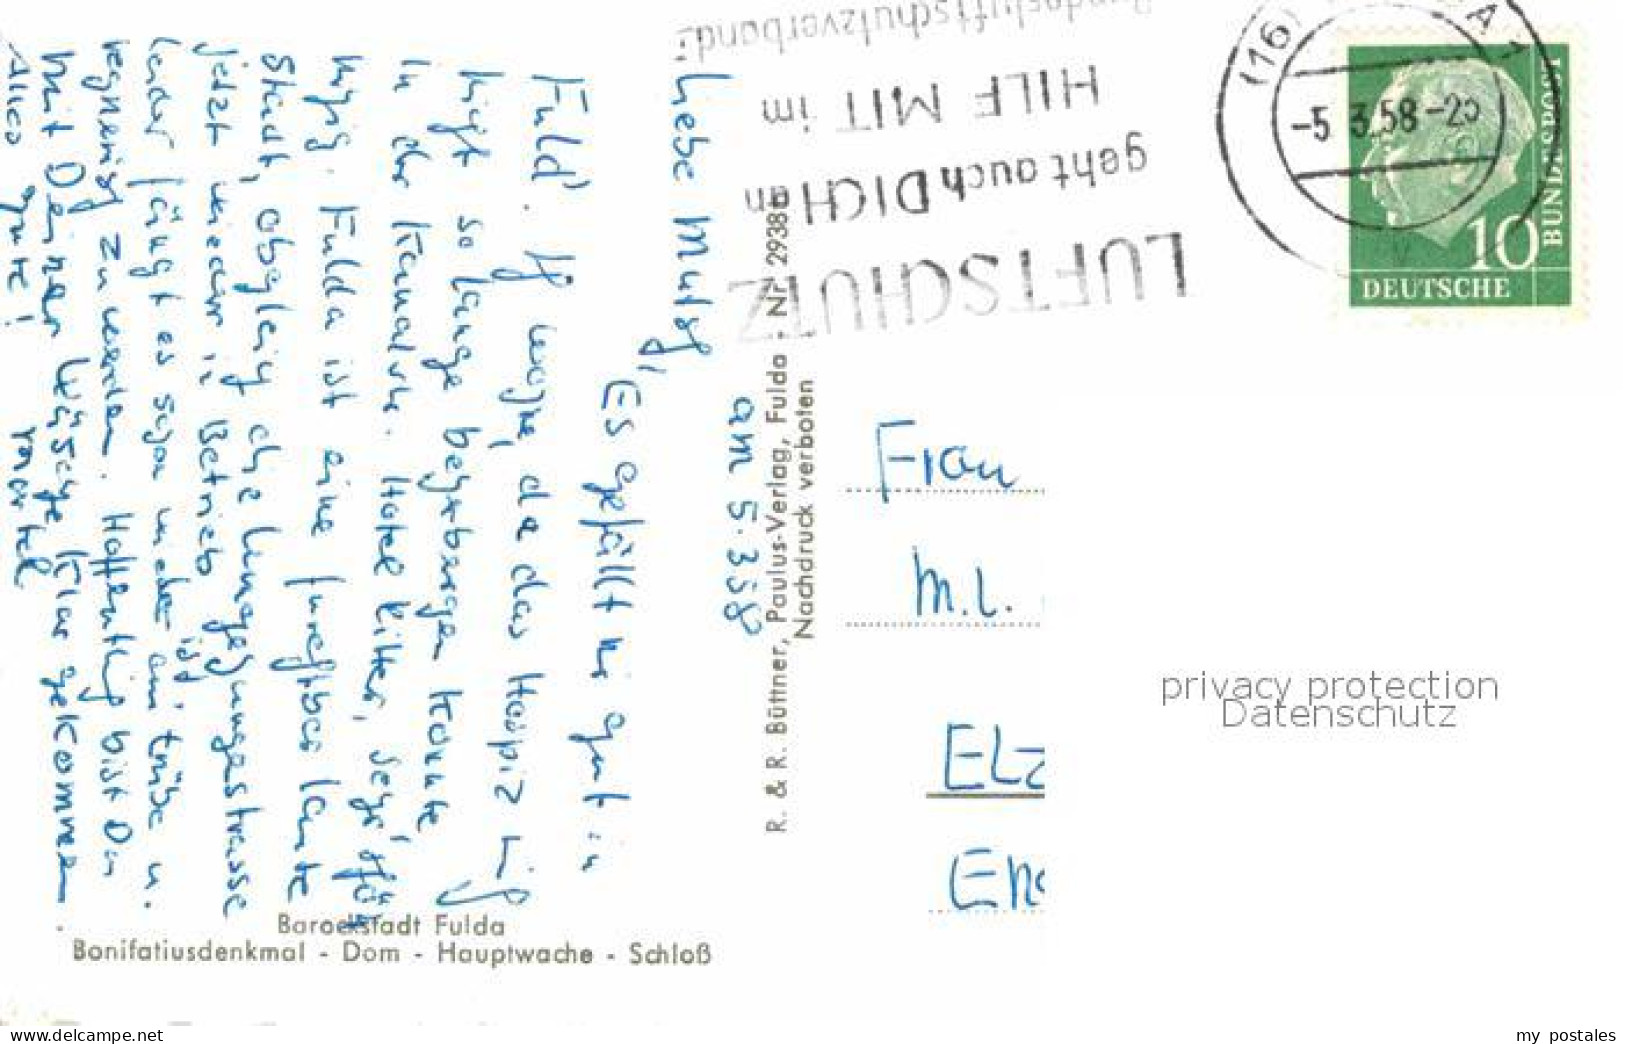 am 5.3.58
Liebe Mutsch,
Es gefällt mir gut in
Fuld. Ich wohne, da das Hospiz mich
nicht so lange beherbergen konnte
in der Kanalstr. Hotel Ritter, sehr
ruhig. Fulda ist eine furchtbar laute
Stadt, obgleich die Umgehungsstrasse
jetzt wieder in Betrieb ist
leider fängt es schon wieder an trübe u.
regnerisch zu werden. Hoffentlich bist Du
mit Deiner Wäsche klar gekommen.
Alles Gute!
Barockstadt Fulda
Bonifatiusdenkmal - Dom - Hauptwache - Schloß
R. & R. Büttner, Paulus-Verlag, Fulda - Nr. 2938
Nachdruck verboten
LUFTSCHUTZ
geht auch DICH an
HILF MIT im
Bundesluftschutzverband!
(16) A 1
-5.3.58-
10
DEUTSCHE
BUNDESPOST
Frau
M.L.
Elz
En
privacy protection
Datenschutz
delcampe.net
my_postales